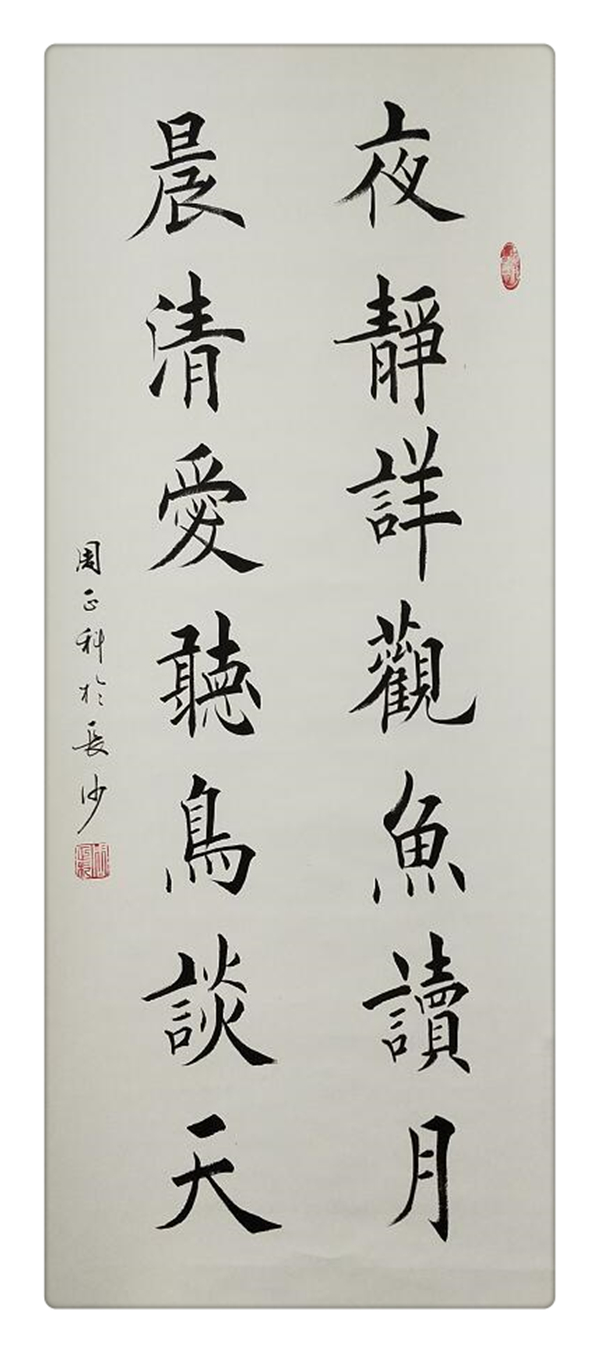 夜靜詳觀魚讀月
晨清愛聽鳥談天
周正科於長沙